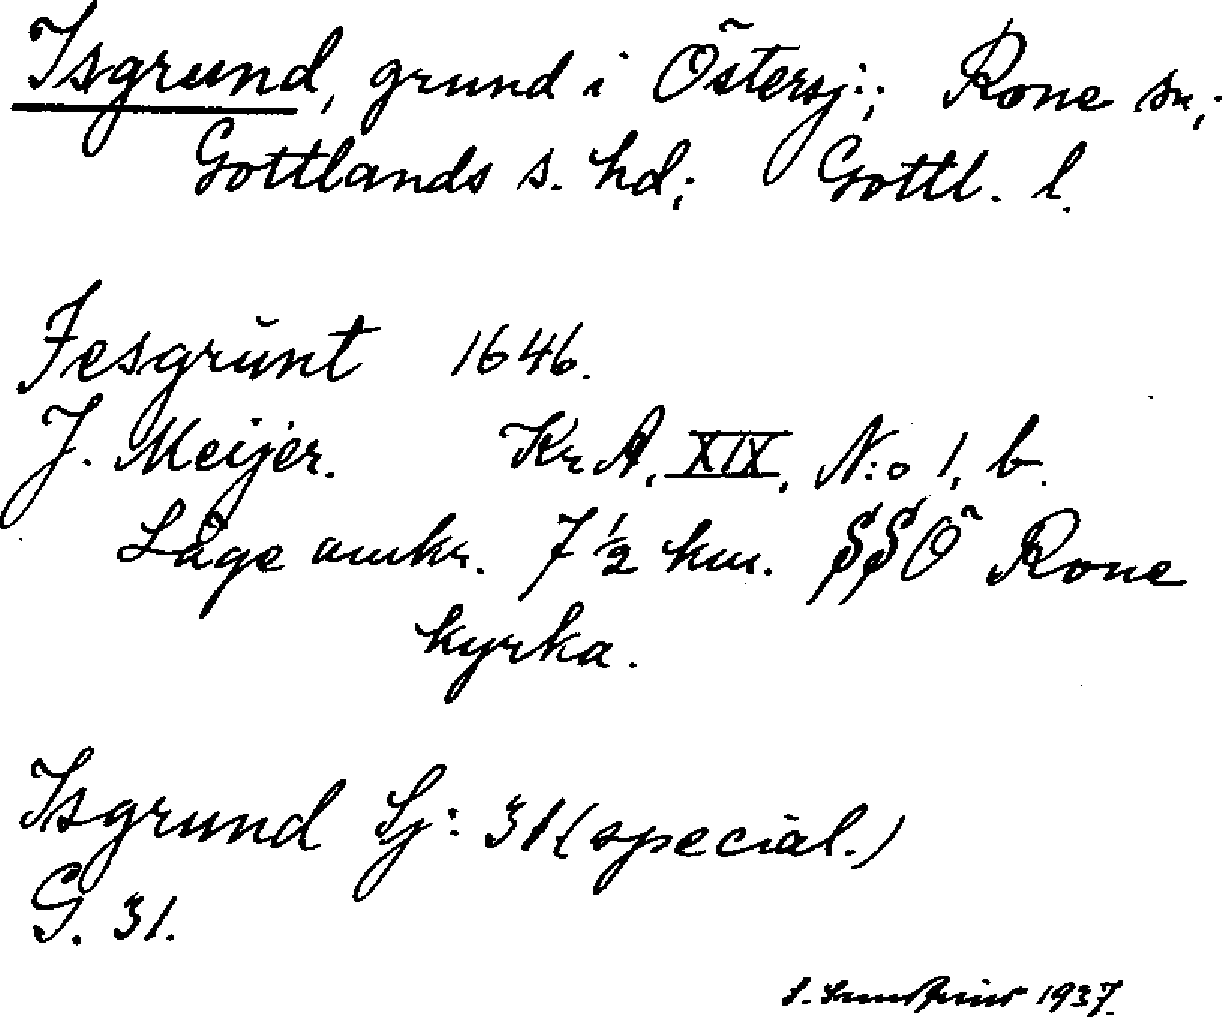 Isgrund, grund i Östersj:; Rone sn,;
Gottlands s. hd,; Gottl. l.
Jesgrŭnt 1646.
J. Meijer. Kr A, XIX, N:o 1, b.
Läge omkr. 7 1/2 km. SSÖ Rone
kyrka.
Isgrund Sj: 31 (special.)
G. 31.
1937.